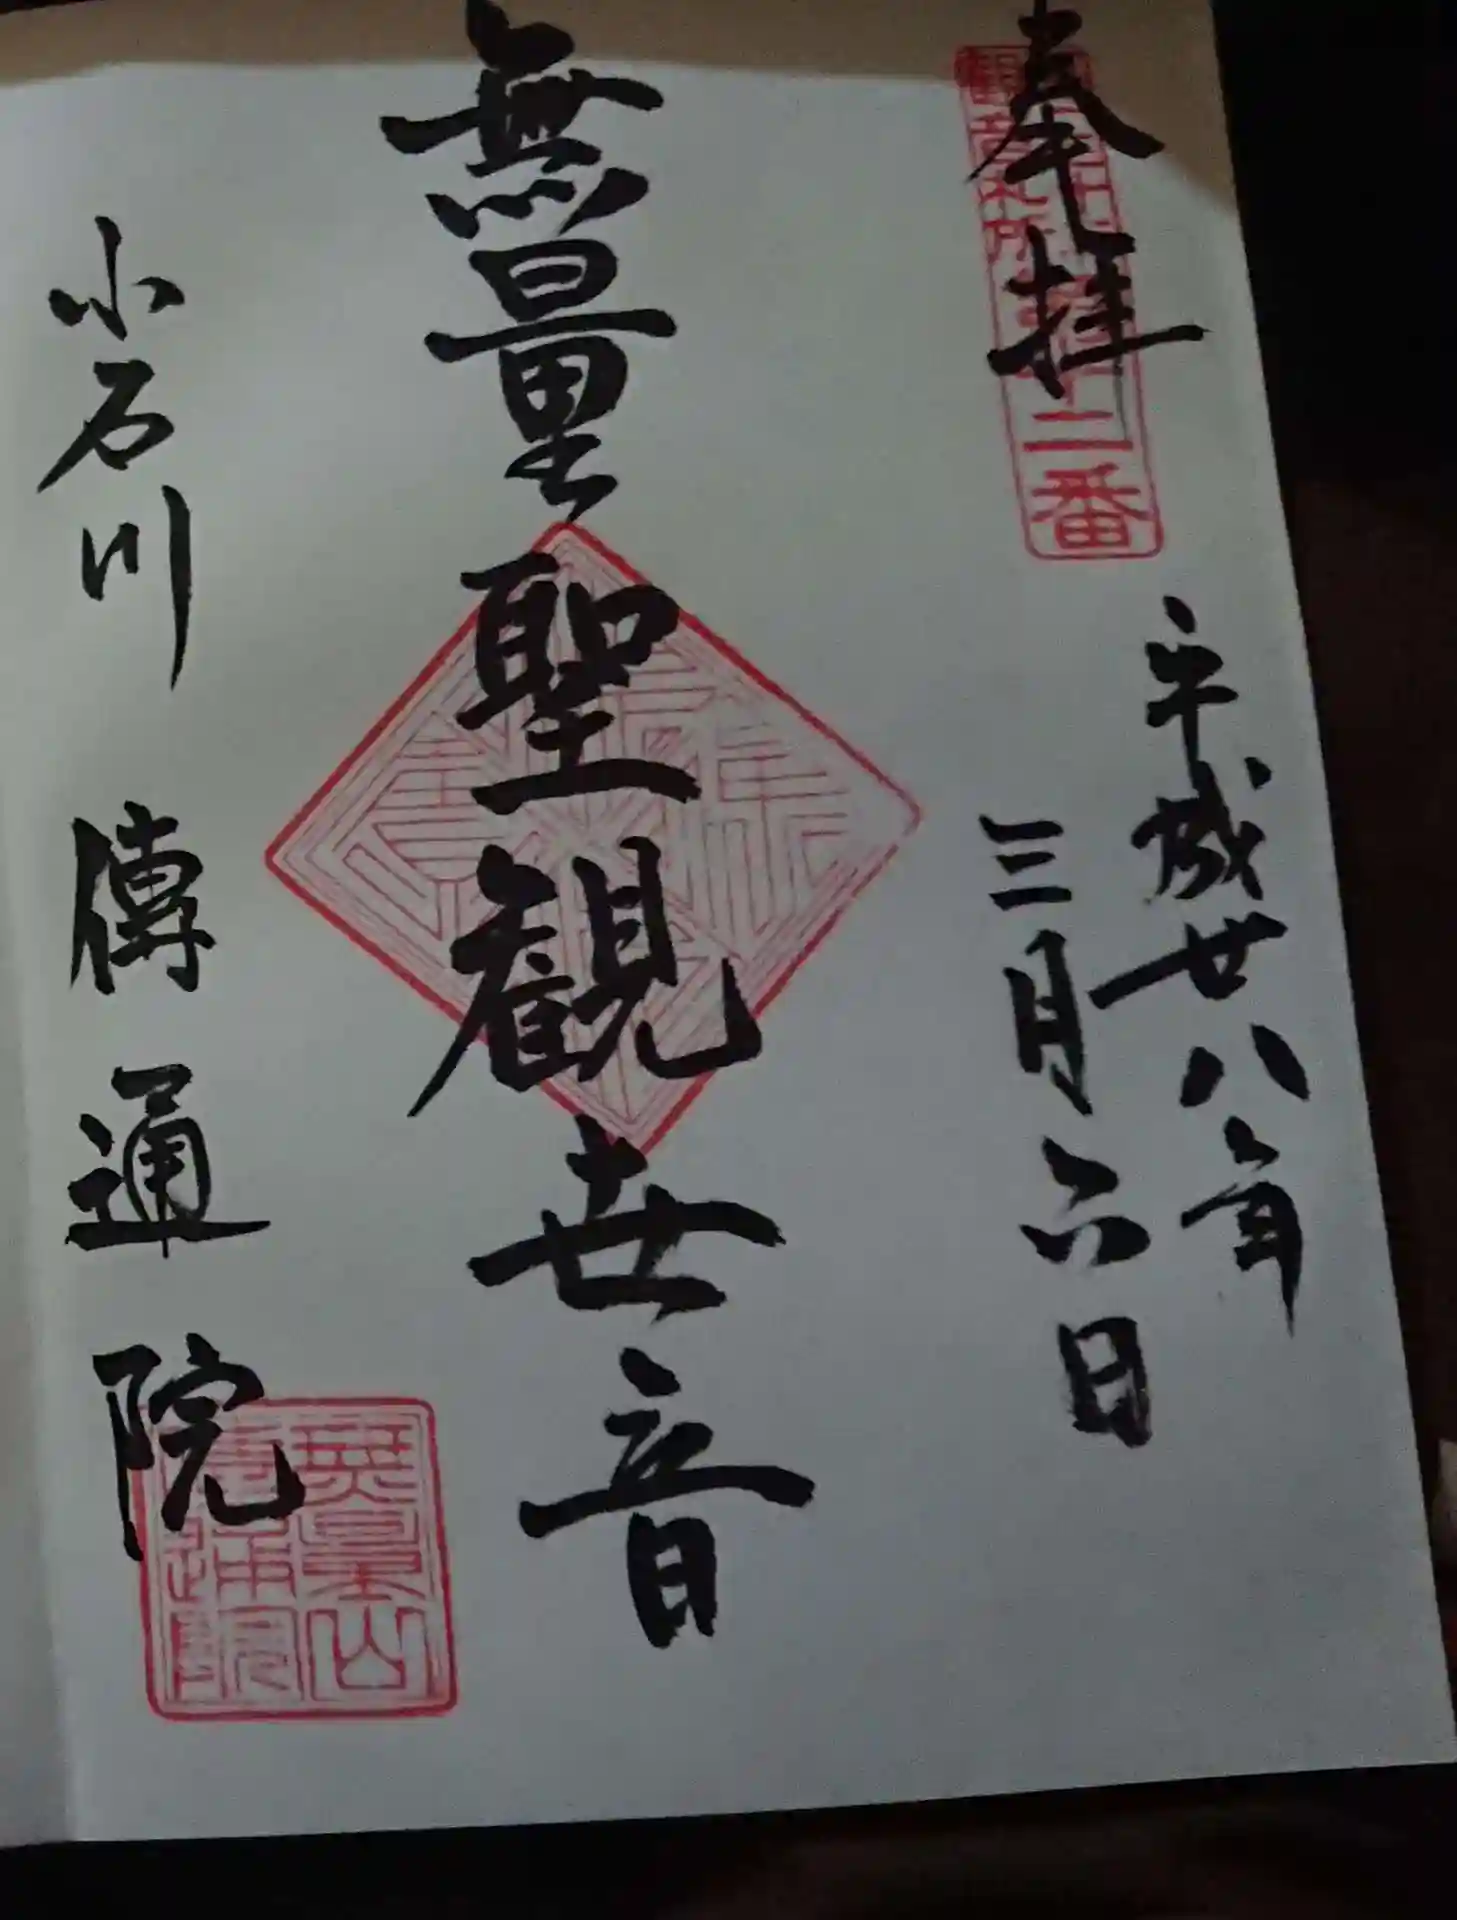 奉拝
十二番
平成廿八年
三月六日
無量聖観世音
小石川 傳通院
無量山
傳通院